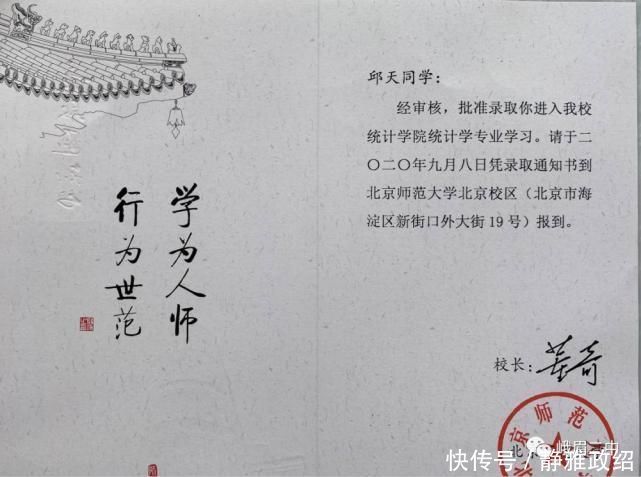 学为人师
行为世范
邱天同学：
经审核，批准录取你进入我校
统计学院统计学专业学习。请于二
〇二〇年九月八日凭录取通知书到
北京师范大学北京校区（北京市海
淀区新街口外大街19号）报到。
校长：董奇
京师范
峨眉二中
快传号／静雅政绍